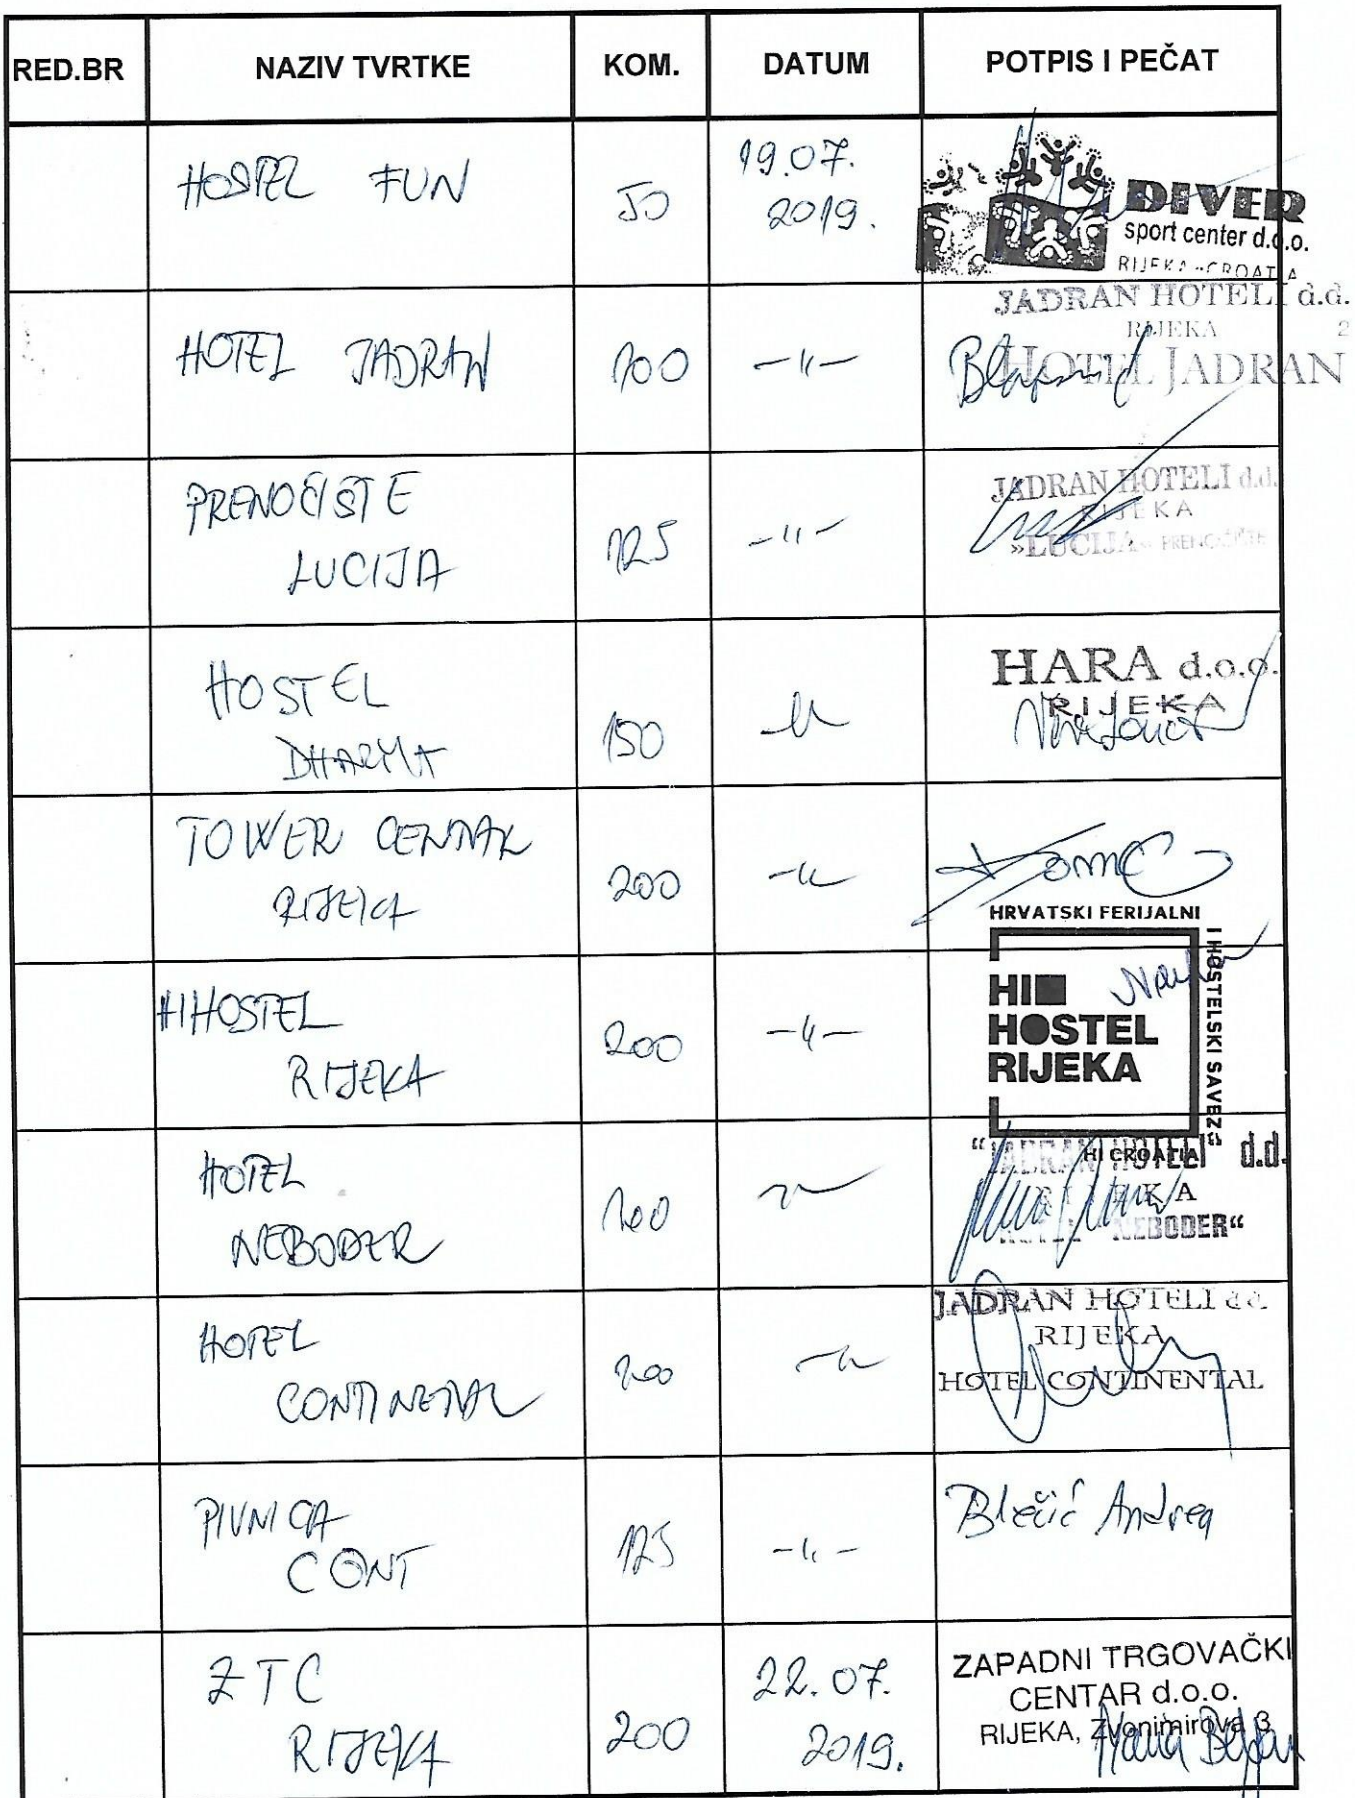 RED.BR NAZIV TVRTKE KOM. DATUM POTPIS I PEČAT
HOSTEL FUN 50 19.07.
2019.
DIVER
sport center d.o.o.
RIJEKA - CROATIA
HOTEL JADRAN 100 -〃-
JADRAN HOTELI d.d.
RIJEKA 2
HOTEL JADRAN
PRENOĆIŠTE
LUCIJA 125 -〃-
JADRAN HOTELI d.d.
RIJEKA
»LUCIJA« PRENOĆIŠTE
HOSTEL
DHARMA 150 -〃-
HARA d.o.o.
RIJEKA
TOWER CENTAR
RIJEKA 200 -〃-
HI HOSTEL
RIJEKA 200 -〃-
HRVATSKI FERIJALNI
I HOSTELSKI SAVEZ
HI
HOSTEL
RIJEKA
HI CROATIA
HOTEL
NEBODER 100 -〃-
"JADRAN HOTELI" d.d.
RIJEKA
HOTEL "NEBODER“
HOTEL
CONTINENTAL 200 -〃-
JADRAN HOTELI d.d.
RIJEKA
HOTEL CONTINENTAL
PIVNICA
CONT 125 -〃-
Blečić Andrea
ZTC
RIJEKA 200 22.07.
2019.
ZAPADNI TRGOVAČKI
CENTAR d.o.o.
RIJEKA, Zvonimirova 3